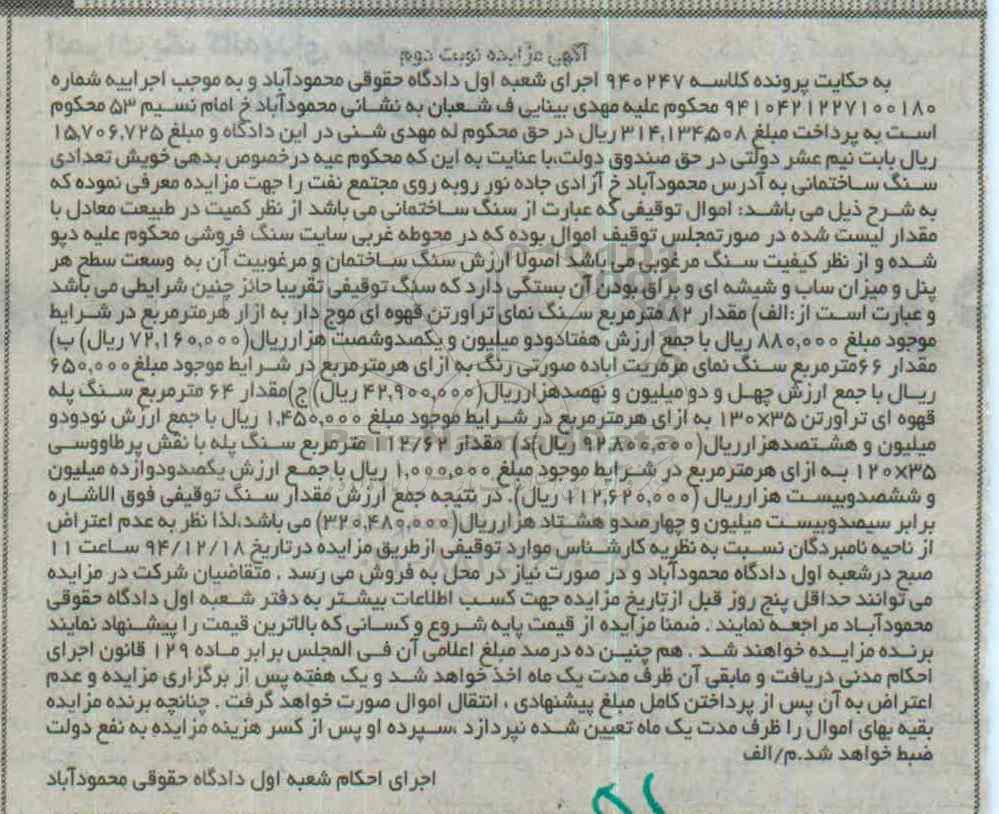 آگهی مزایده نوبت دوم
به حکایت پرونده کلاسه ۹۴۰۲۴۷ اجرای شعبه اول دادگاه حقوقی محمودآباد و به موجب اجراییه شماره
۹۴۱۰۴۲۱۲۲۷۱۰۰۱۸۰ محکوم علیه مهدی بینایی ف شعبان به نشانی محمودآباد خ امام نسیم ۵۳ محکوم
است به پرداخت مبلغ ۳۱۴,۱۳۴,۵۰۸ ریال در حق محکوم له مهدی شنی در این دادگاه و مبلغ ۱۵,۷۰۶,۷۲۵
ریال بابت نیم عشر دولتی در حق صندوق دولت،با عنایت به این که محکوم عیه درخصوص بدهی خویش تعدادی
سنگ ساختمانی به آدرس محمودآباد خ آزادی جاده نور روبه روی مجتمع نفت را جهت مزایده معرفی نموده که
به شرح ذیل می باشد: اموال توقیفی که عبارت از سنگ ساختمانی می باشد از نظر کمیت در طبیعت معادل با
مقدار لیست شده در صورتمجلس توقیف اموال بوده که در محوطه غربی سایت سنگ فروشی محکوم علیه دپو
شده و از نظر کیفیت سنگ مرغوبی می باشد اصولا ارزش سنگ ساختمان و مرغوبیت آن به وسعت سطح هر
پنل و میزان ساب و شیشه ای و براق بودن آن بستگی دارد که سنگ توقیفی تقریبا حائز چنین شرایطی می باشد
و عبارت است از:الف) مقدار ۸۲ مترمربع سنگ نمای تراورتن قهوه ای موج دار به ازار هرمترمربع در شرایط
موجود مبلغ ۸۸۰,۰۰۰ ریال با جمع ارزش هفتادودو میلیون و یکصدوشصت هزارریال(۷۲,۱۶۰,۰۰۰ ریال) ب)
مقدار ۶۶مترمربع سنگ نمای مرمریت اباده صورتی رنگ به ازای هرمترمربع در شرایط موجود مبلغ ۶۵۰,۰۰۰
ریال با جمع ارزش چهل و دو میلیون و نهصدهزارریال(۴۲,۹۰۰,۰۰۰ ریال) ج)مقدار ۶۴ مترمربع سنگ پله
قهوه ای تراورتن ۳۵×۱۳۰ به ازای هرمترمربع در شرایط موجود مبلغ ۱,۴۵۰,۰۰۰ ریال با جمع ارزش نودودو
میلیون و هشتصدهزارریال(۹۲,۸۰۰,۰۰۰ ریال)د) مقدار ۱۱۲/۶۲ مترمربع سنگ پله با نقش پرطاووسی
۳۵×۱۲۰ به ازای هرمترمربع در شرایط موجود مبلغ ۱,۰۰۰,۰۰۰ ریال با جمع ارزش یکصدودوازده میلیون
و ششصدوبیست هزارریال (۱۱۲,۶۲۰,۰۰۰ ریال). در نتیجه جمع ارزش مقدار سنگ توقیفی فوق الاشاره
برابر سیصدوبیست میلیون و چهارصدو هشتاد هزارریال(۳۲۰,۴۸۰,۰۰۰) می باشد،لذا نظر به عدم اعتراض
از ناحیه نامبردگان نسبت به نظریه کارشناس موارد توقیفی ازطریق مزایده درتاریخ ۹۴/۱۲/۱۸ ساعت ۱۱
صبح درشعبه اول دادگاه محمودآباد و در صورت نیاز در محل به فروش می رسد . متقاضیان شرکت در مزایده
می توانند حداقل پنج روز قبل ازتاریخ مزایده جهت کسب اطلاعات بیشتر به دفتر شعبه اول دادگاه حقوقی
محمودآباد مراجعه نمایند . ضمنا مزایده از قیمت پایه شروع و کسانی که بالاترین قیمت را پیشنهاد نمایند
برنده مزایده خواهند شد . هم چنین ده درصد مبلغ اعلامی آن فی المجلس برابر ماده ۱۲۹ قانون اجرای
احکام مدنی دریافت و مابقی آن ظرف مدت یک ماه اخذ خواهد شد و یک هفته پس از برگزاری مزایده و عدم
اعتراض به آن پس از پرداختن کامل مبلغ پیشنهادی ، انتقال اموال صورت خواهد گرفت . چنانچه برنده مزایده
بقیه بهای اموال را ظرف مدت یک ماه تعیین شده نپردازد ،سپرده او پس از کسر هزینه مزایده به نفع دولت
ضبط خواهد شد.م/الف
اجرای احکام شعبه اول دادگاه حقوقی محمودآباد